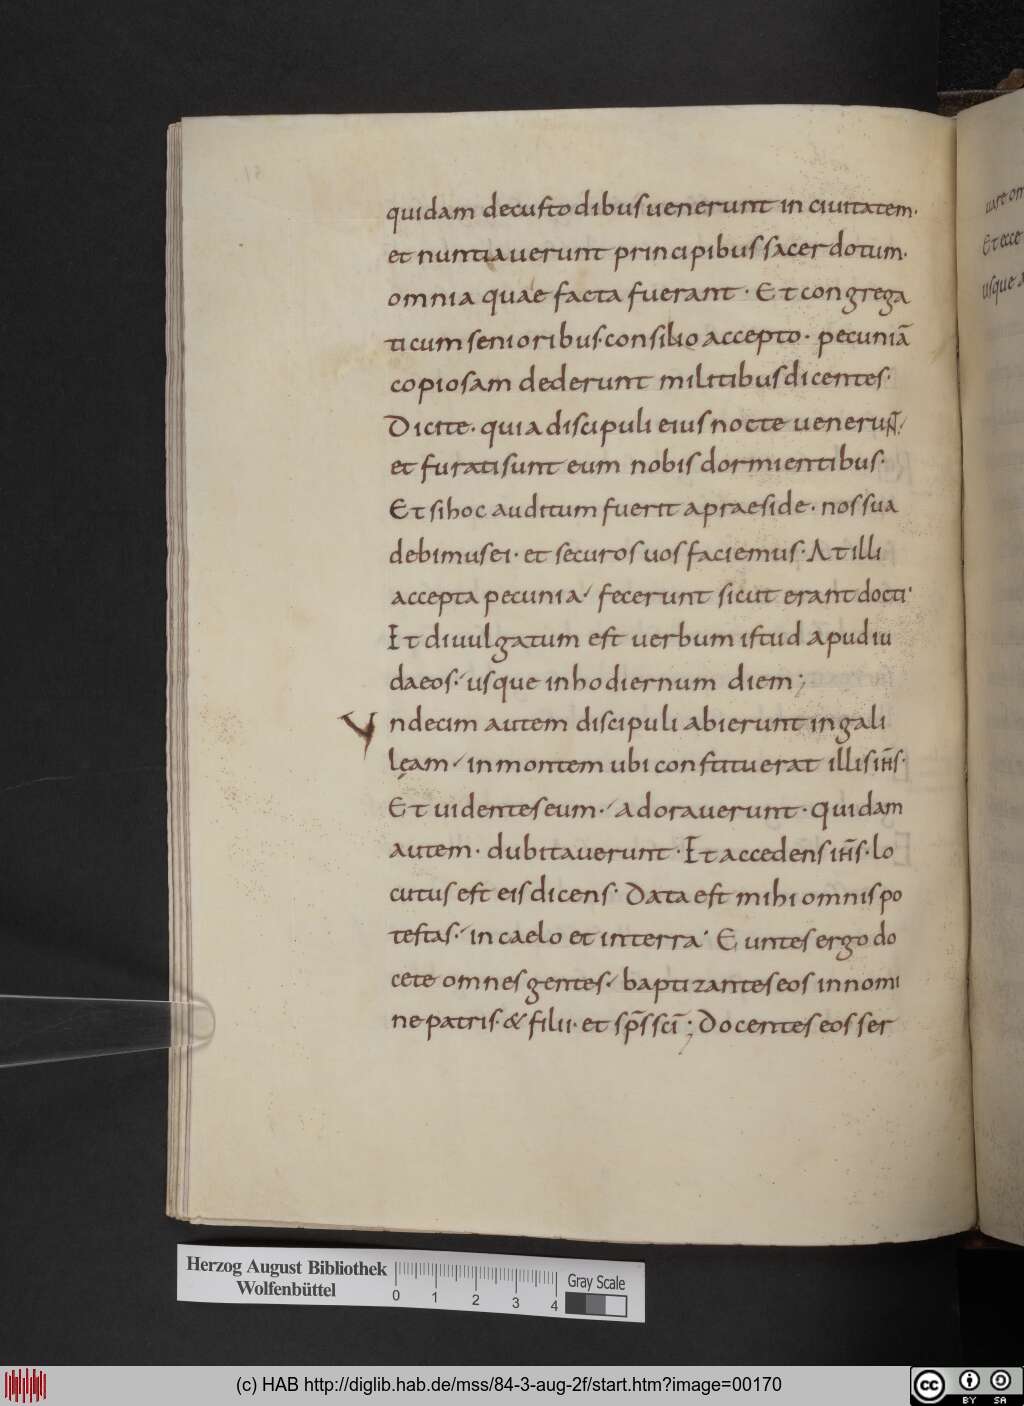 quidam decustodibus uenerunt in ciuitatem·
et nuntiauerunt principibus sacerdotum·
omnia quae facta fuerant· Et congrega
ti cum senioribus· consilio accepto· pecuniā
copiosam dederunt militibus dicentes·
Dicite· quia discipuli eius nocte uenerunt·
et furati sunt eum nobis dormientibus·
Et si hoc auditum fuerit apraeside· nos sua
debimus ei· et securos uos faciemus· At illi
accepta pecunia· fecerunt sicut erant docti·
Et diuulgatum est uerbum istud apud iu
daeos· usque in hodiernum diem;
Vndecim autem discipuli abierunt in gali
lęam· in montem ubi constituerat illis ih̄s·
Et uidentes eum· adorauerunt· quidam
autem· dubitauerunt· Et accedens ih̄s· lo
cutus est eis dicens· Data est mihi omnis po
testas· in caelo et in terra· Euntes ergo do
cete omnes gentes· baptizantes eos in nomi
ne patris· & filii· et sp̄s sc̄i; Docentes eos ser
uare om
Et ecce
usque a
Herzog August Bibliothek
Wolfenbüttel
0 1 2 3 4
Gray Scale
(c) HAB http://diglib.hab.de/mss/84-3-aug-2f/start.htm?image=00170
cc BY SA